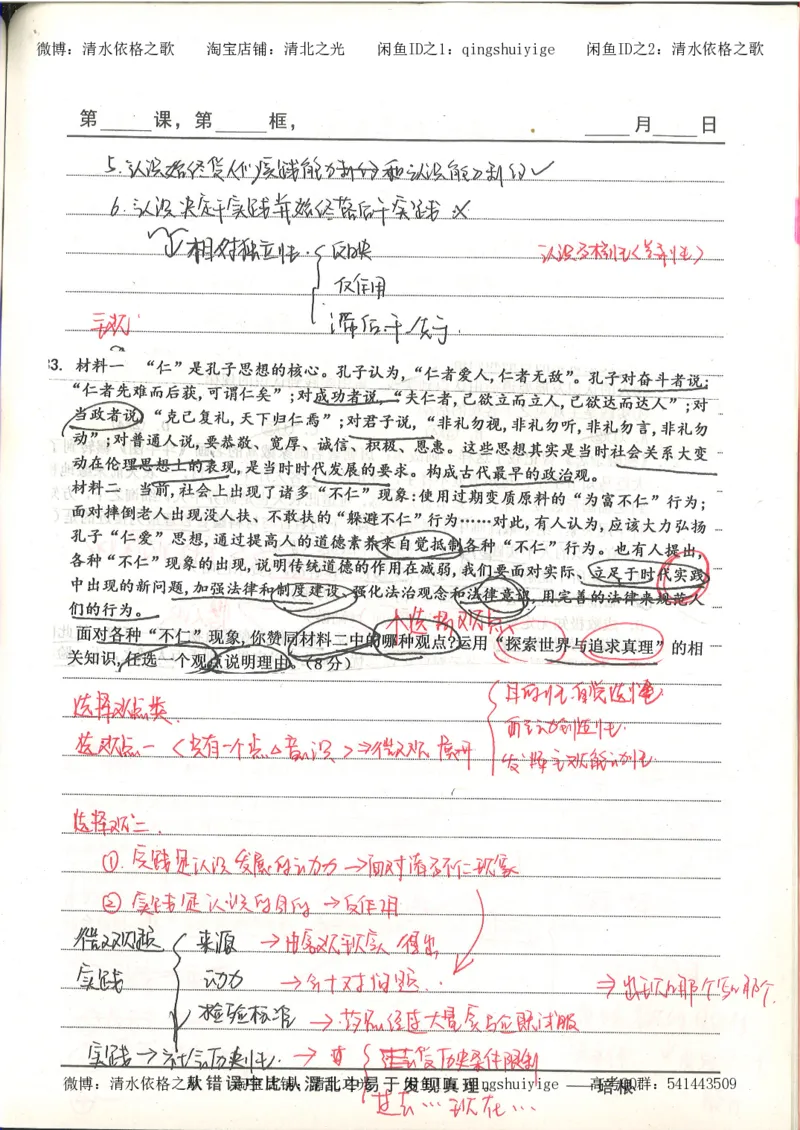 微博：清水依格之歌 淘宝店铺：清北之光 闲鱼ID之1：qingshuiyige 闲鱼ID之2：清水依格之歌
第_____课，第_____框， _____月_____日
5.认识始终受人们实践能力制约和认识能力制约✓
6.认识决定于实践并始终落后于实践 ×
相对独立性.
反映
反作用
滞后于/先于.
认识反复性
主观
33. 材料一 “仁”是孔子思想的核心。孔子认为，“仁者爱人，仁者无敌”。孔子对奋斗者说：
“仁者先难而后获，可谓仁矣”；对成功者说，“夫仁者，己欲立而立人，己欲达而达人”；对
当政者说，“克己复礼，天下归仁焉”；对君子说，“非礼勿视，非礼勿听，非礼勿言，非礼勿
动”；对普通人说，要恭敬、宽厚、诚信、积极、恩惠。这些思想其实是当时社会关系大变
动在伦理思想上的表现，是当时时代发展的要求。构成古代最早的政治观。
材料二 当前，社会上出现了诸多“不仁”现象：使用过期变质原料的“为富不仁”行为；
面对摔倒老人出现没人扶、不敢扶的“躲避不仁”行为……对此，有人认为，应该大力弘扬
孔子“仁爱”思想，通过提高人的道德素养来自觉抵制各种“不仁”行为。也有人提出，
各种“不仁”现象的出现，说明传统道德的作用在减弱，我们要面对实际、立足于时代实践
中出现的新问题，加强法律和制度建设、强化法治观念和法律意识，用完善的法律来规范人
们的行为。
个选择观点
面对各种“不仁”现象，你赞同材料二中的哪种观点？运用“探索世界与追求真理”的相
关知识，任选一个观点说明理由。（8分）
目的性 自觉选择
选择观点类.
而主动创造性.
选观点一 <只有一个点△意识>⇒微观 展开
发挥主观能动性
选择观点二.
①.实践是认识发展的动力→面对诸多不仁现象
②实践是认识的目的→反作用
微观
实践
来源 →由客观现象 得出
动力 →针对问题..
⇒出现哪个写哪个.
检验标准 →
实践→社会历史性. → 受历史条件限制
过去…现在…
微博：清水依格之歌 淘宝店铺：清北之光 闲鱼ID之1：qingshuiyige 高考QQ群：541443509
从错误中比从混乱中易于发现真理。 ——培根